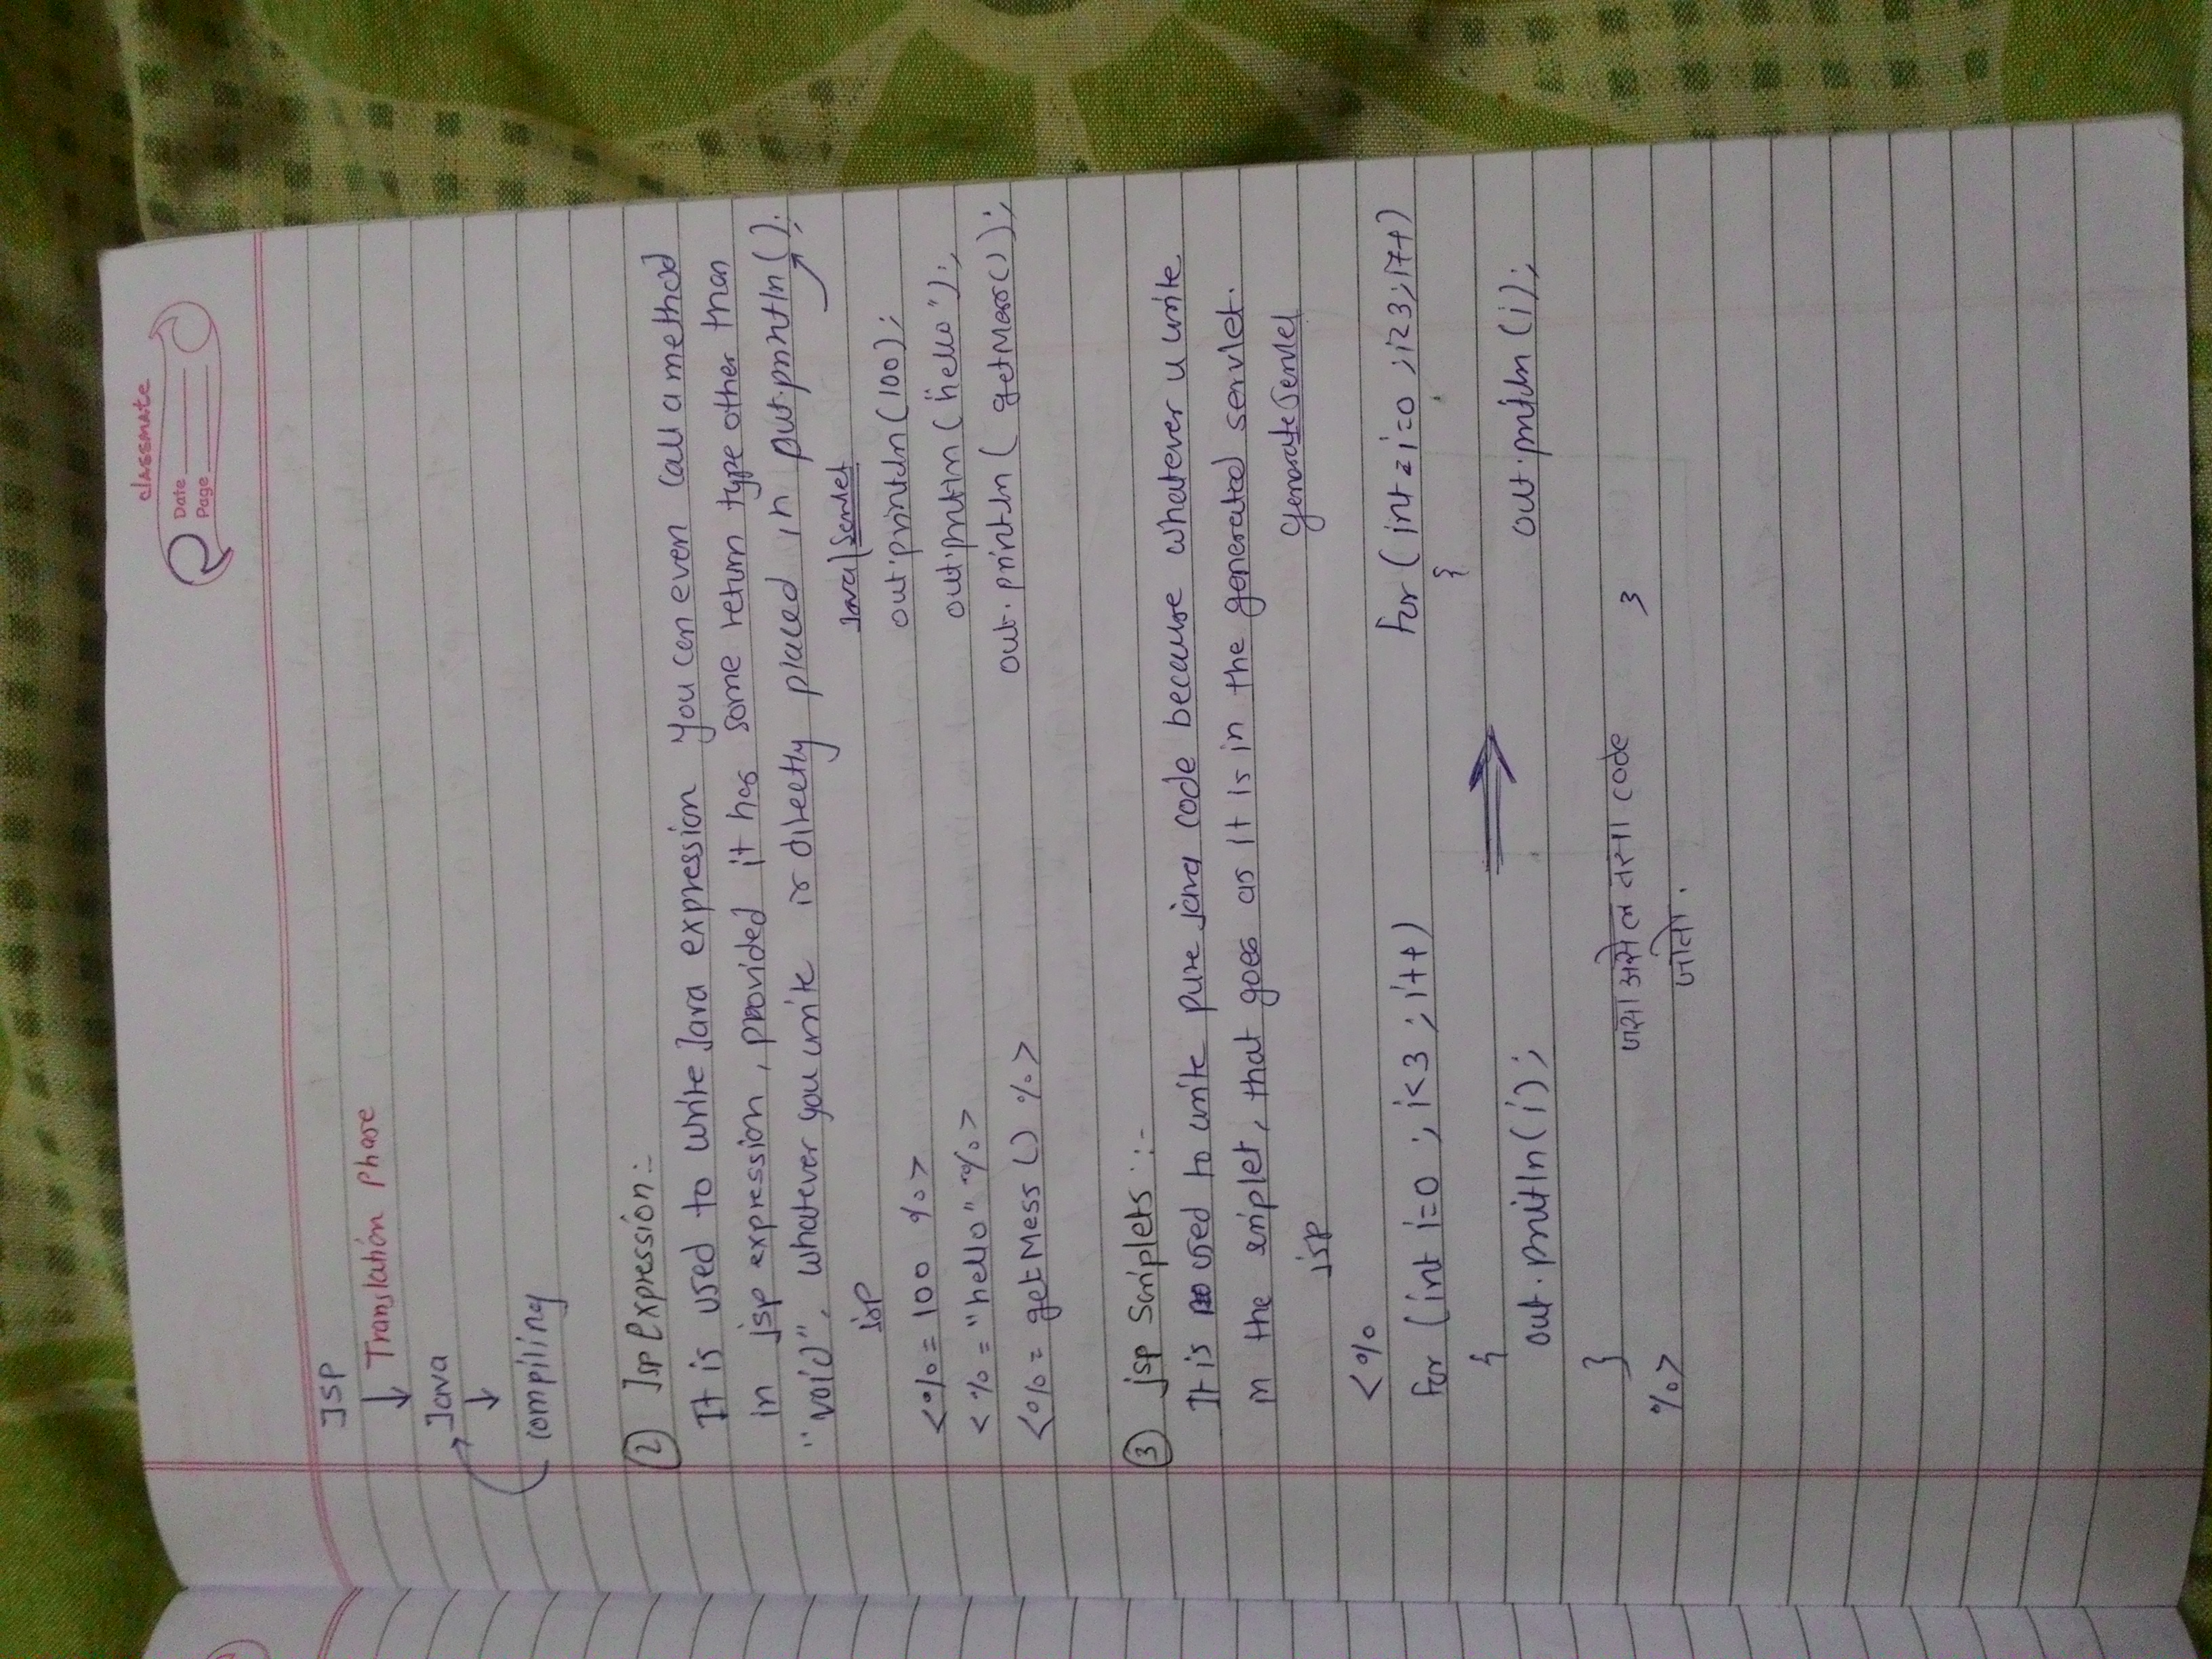 classmate
Date
Page
JSP
↓ Translation Phase
Java
↓
compiling
② Jsp Expression :-
It is used to write Java expression you can even call a method
in jsp expression, provided it has some return type other than
"void". whatever you write is directly placed in out.println();
jsp Java/Servlet
<%= 100 %> out.println(100);
<%= "hello" %> out.println("hello");
<%= getMess() %> out.println( getMess());
③ jsp Scriplets :-
It is used to write pure java code because whatever u write
in the scriplet, that goes as it is in the generated servlet.
jsp Generate Servlet
<%
for (int i=0 ; i<3 ; i++) for (int i=0 ; i<3; i++)
{ {
out.println(i); ⇒ out.println(i);
} जसा असेल तसा code }
%> जातो.